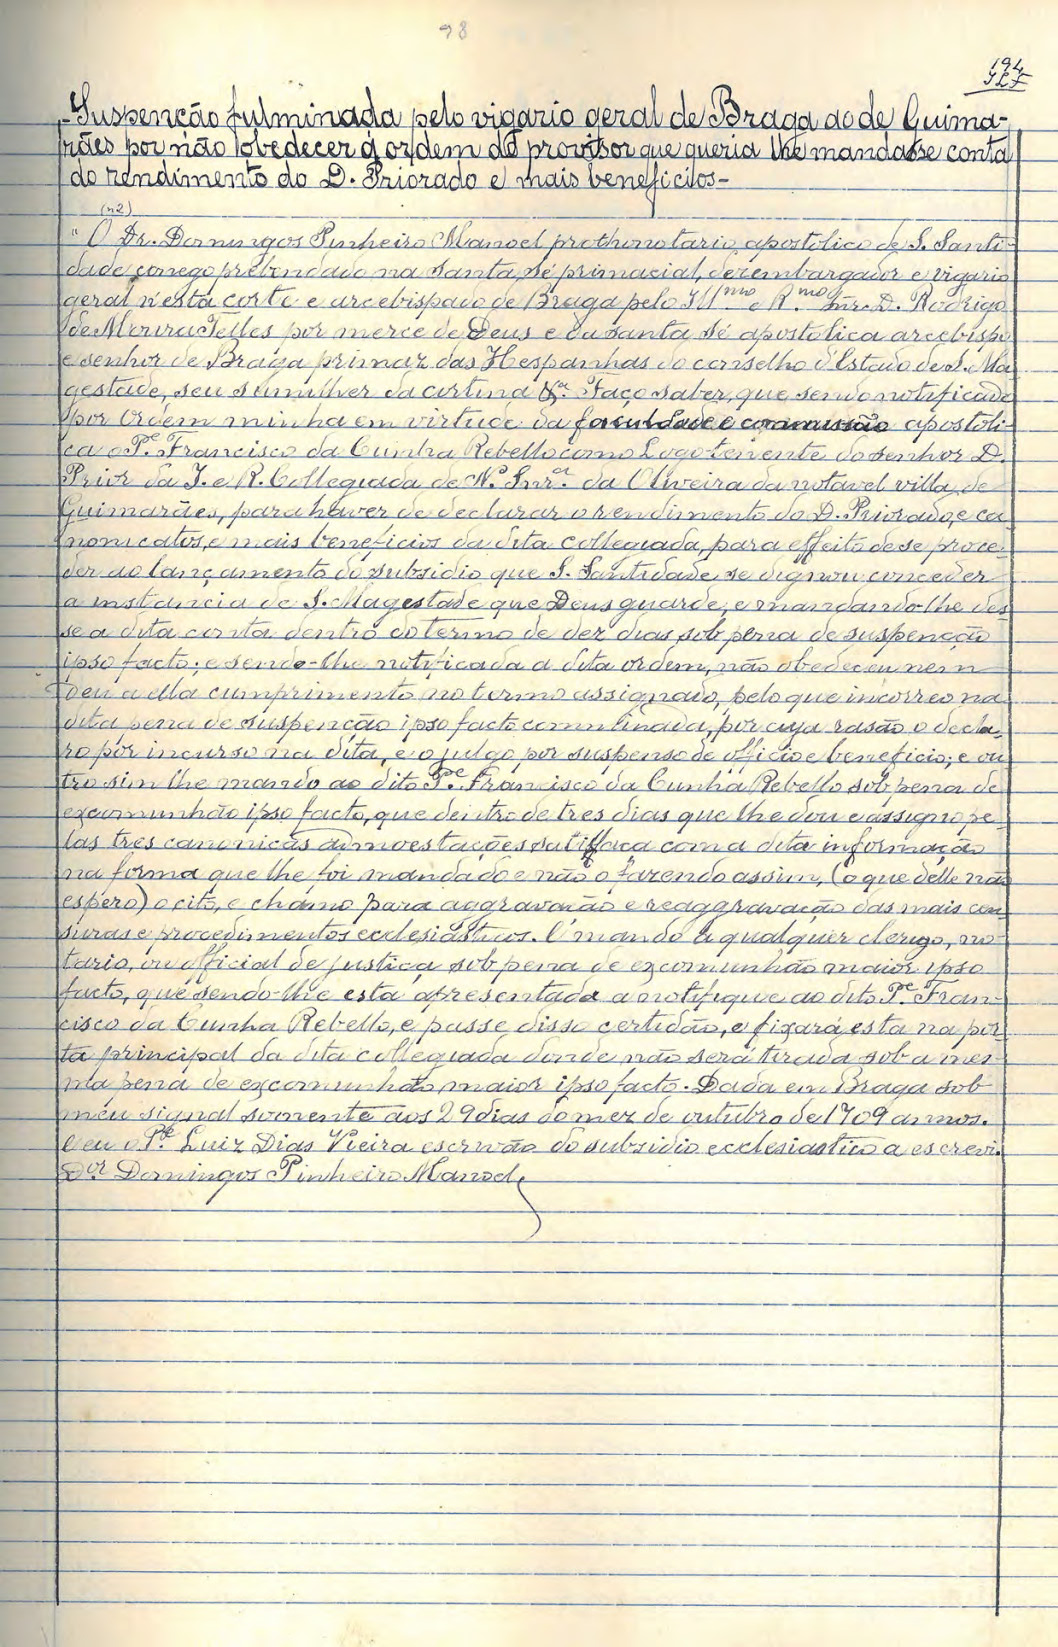 98
194
-Suspenção fulminada pelo vigario geral de Braga ao de Guima-
rães por não obedecer á ordem do provisor que queria lhe mandasse conta
do rendimento do D. Priorado e mais beneficios-
(n2)
" O Dr. Domingos Pinheiro Manoel prothonotario apostolico de S. Santi-
dade conego prebendado na santa sé primacial, desembargador e vigario
geral n'esta corte e arcebispado de Braga pelo Ill.mo e R.mo Snr. D. Rodrigo
de Moura Telles por merce de Deus e da santa sé apostolica arcebispo
e senhor de Braga primaz das Hespanhas do conselho d'Estado de S. Ma
gestade, seu sumilher da cortina &.a Faço saber, que sendo notificado
por ordem minha em virtude da faculdade e commissão apostoli-
ca o P.e Francisco da Cunha Rebello como Logotenente do senhor D.
Prior da I. e R. Collegiada de N.a Snr.a da Oliveira da notavel villa de
Guimarães, para haver de declarar o rendimento do D. Priorado, e ca-
nonicatos, e mais beneficios da dita collegiada, para effeito de se proce-
der ao lançamento do subsidio que S. Santidade se dignou conceder
a instancia de S. Magestade que Deus guarde, e mandando-lhe des
se a dita conta dentro do termo de dez dias sob pena de suspenção
ipso facto; e sendo-lhe notificada a dita ordem, não obedeceu nem
deu a ella cumprimento no termo assignado, pelo que incorreo na
dita pena de suspenção ipso facto comminada, por cuja rasão o decla-
ro por incurso na dita, e o julgo por suspenso de officio e beneficio; e ou
tro sim lhe mando ao dito P.e Francisco da Cunha Rebello sob pena de
excomunhão ipso facto, que dentro de tres dias que lhe dou e assigno pe-
las tres canonicas admoestações satisfaça com a dita informação
na forma que lhe foi mandado e não o fazendo assim, (o que delle não
espero) o cito, e chamo para aggravação e reaggravação das mais cen
suras e procedimentos ecclesiasticos. E mando a qualquer clerigo, no-
tario, ou official de justiça sob pena de excomunhão maior ipso
facto, que sendo-lhe esta apresentada a notifique ao dito P.e Fran-
cisco da Cunha Rebello, e passe disso certidão, e fixará esta na por
ta principal da dita collegiada donde não será tirada sob a mes-
ma pena de excomunhão maior ipso facto. Dada em Braga sob
meu signal somente aos 29 dias do mez de outubro de 1709 annos.
E eu o P.e Luiz Dias Vieira escrivão do subsidio ecclesiastico a escrevi.
D.or Domingos Pinheiro Manoel